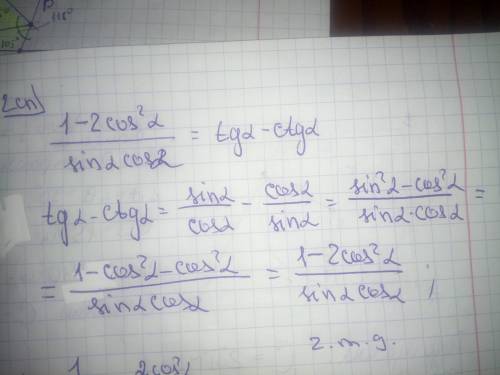 115°
105°
2 сп)
(1-2cos²α)/(sinα cosα) = tgα-ctgα
tgα-ctgα = sinα/cosα - cosα/sinα = (sin²α-cos²α)/(sinα·cosα) =
= (1-cos²α-cos²α)/(sinα cosα) = (1-2cos²α)/(sinα cosα) ;
г.т.g.
1 2cos²